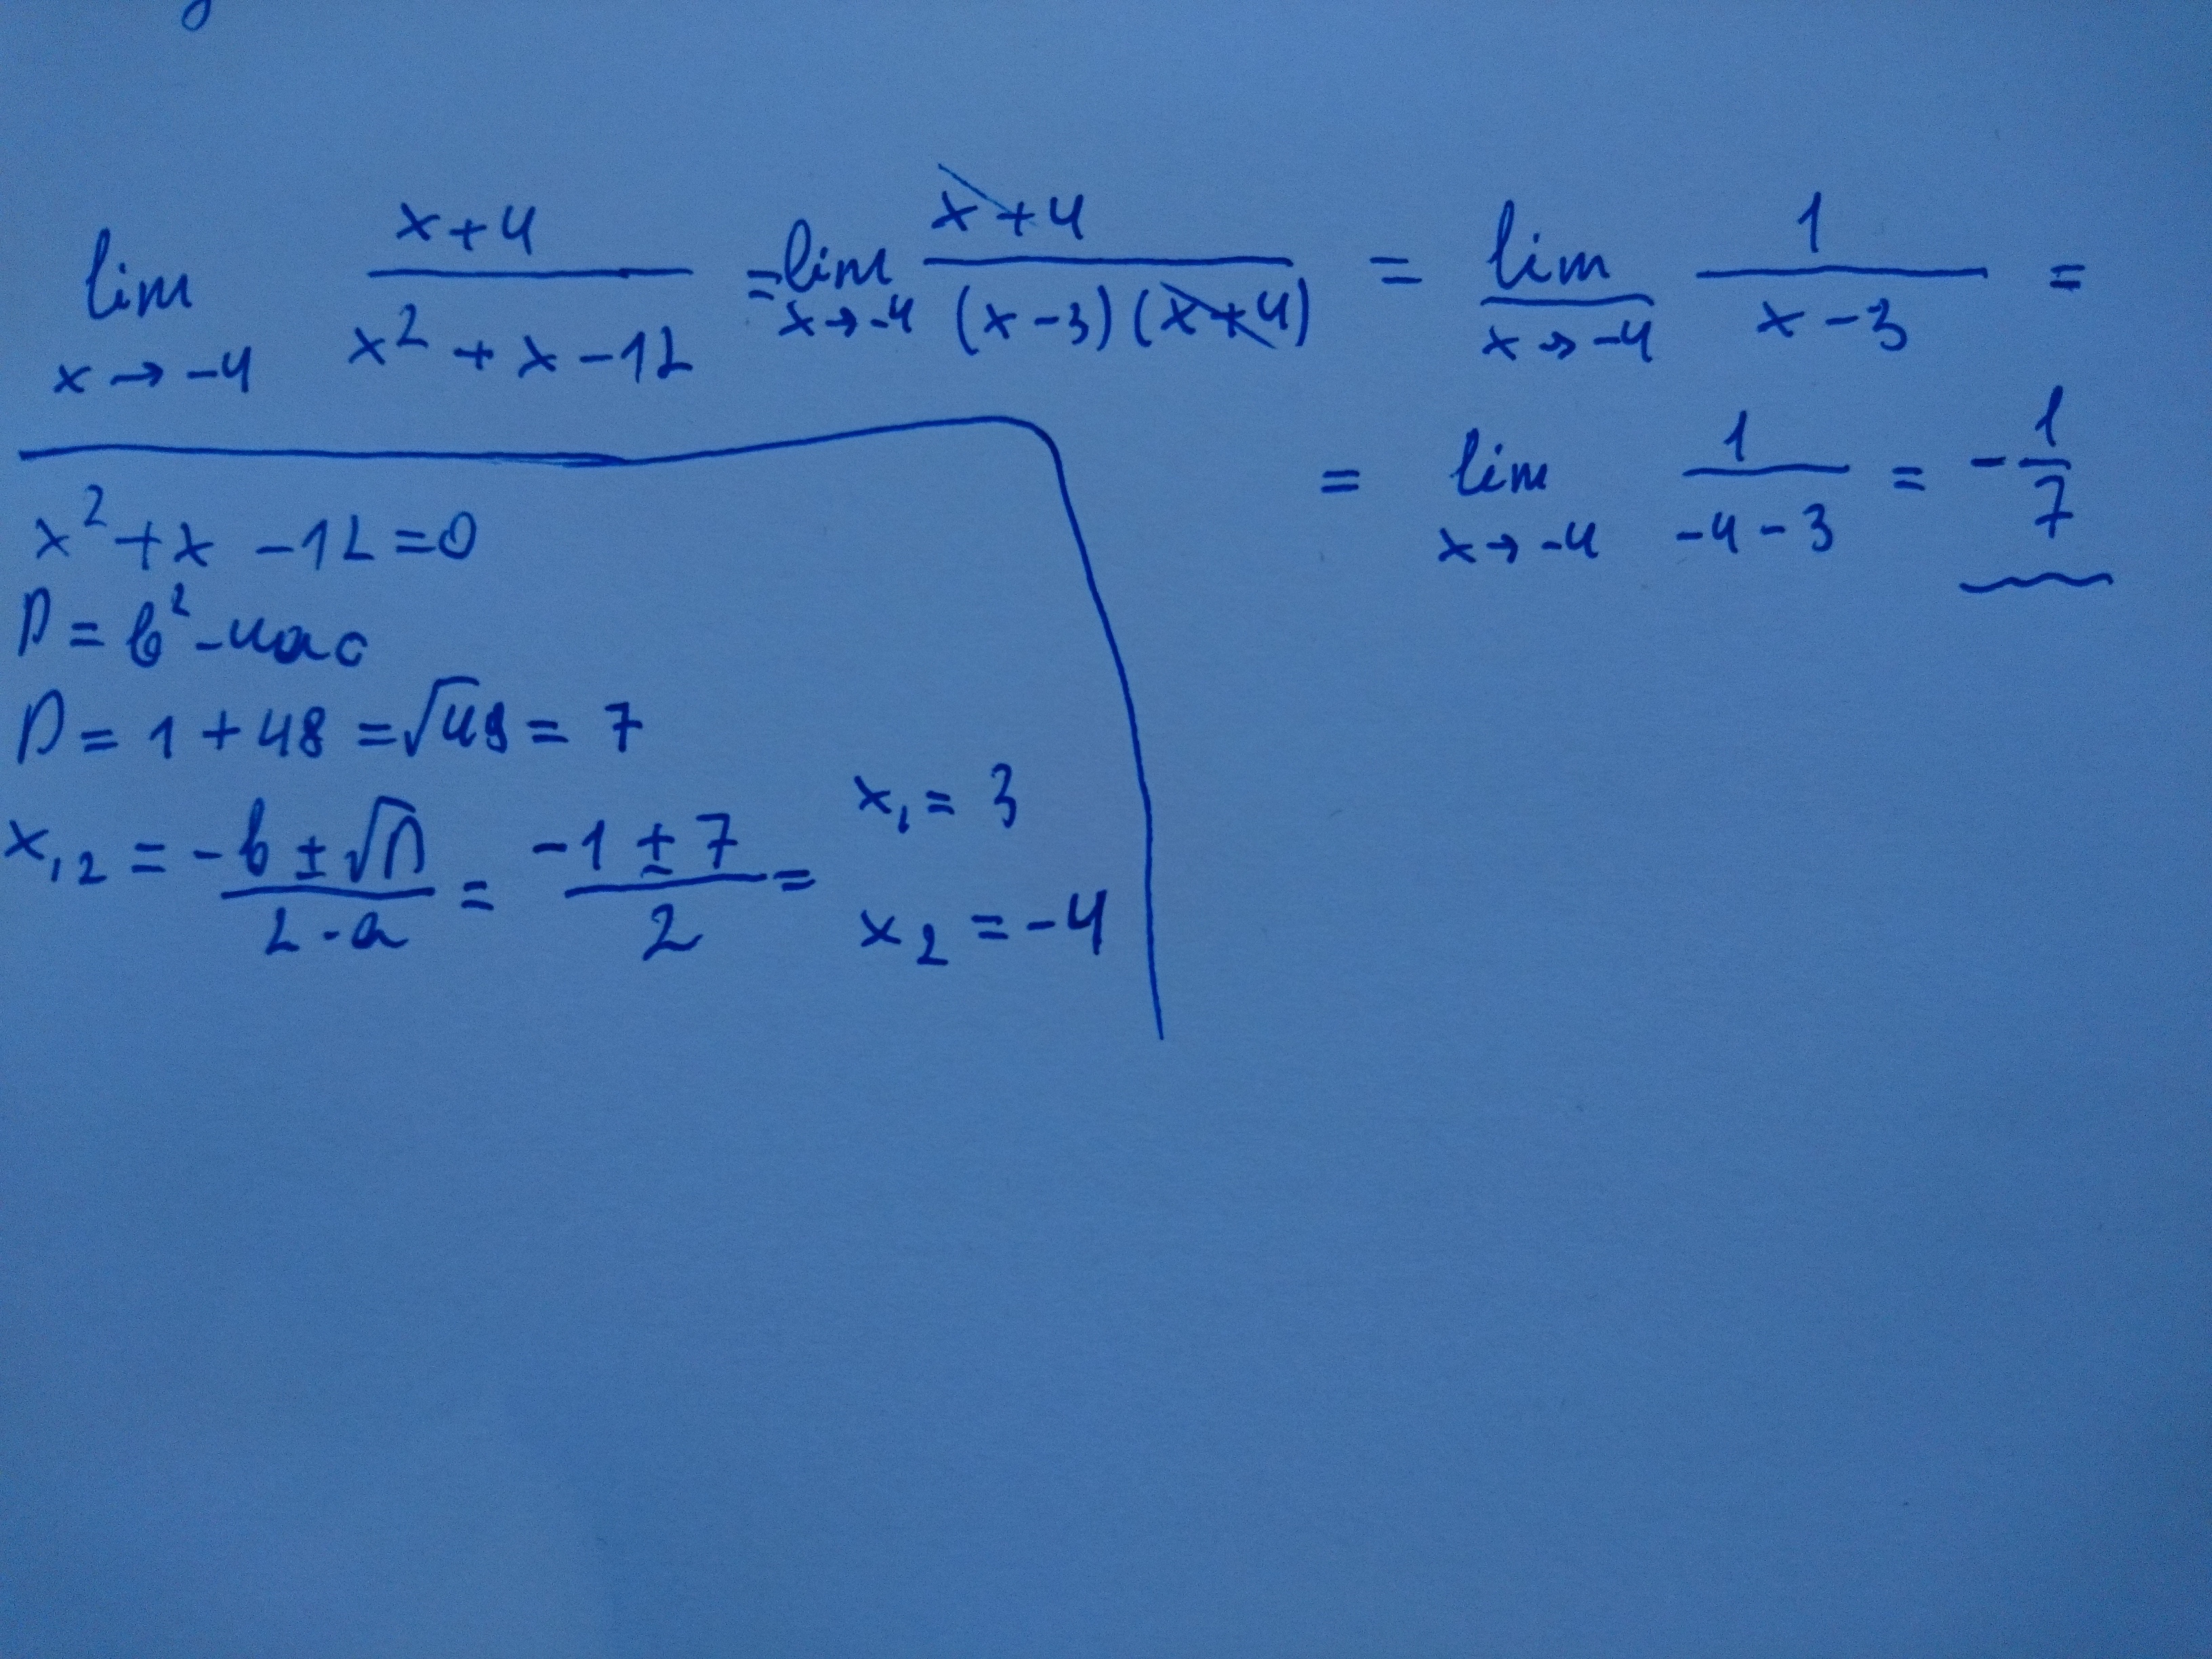 lim x→-4 (x+4)/(x²+x-12) = lim x→-4 (x+4)/((x-3)(x+4)) = lim x→-4 1/(x-3) =
= lim x→-4 1/(-4-3) = -1/7
x²+x-12=0
D=b²-4ac
D=1+48=√49=7
x₁₂ = (-b±√D)/(2·a) = (-1±7)/2 =
x₁=3
x₂=-4